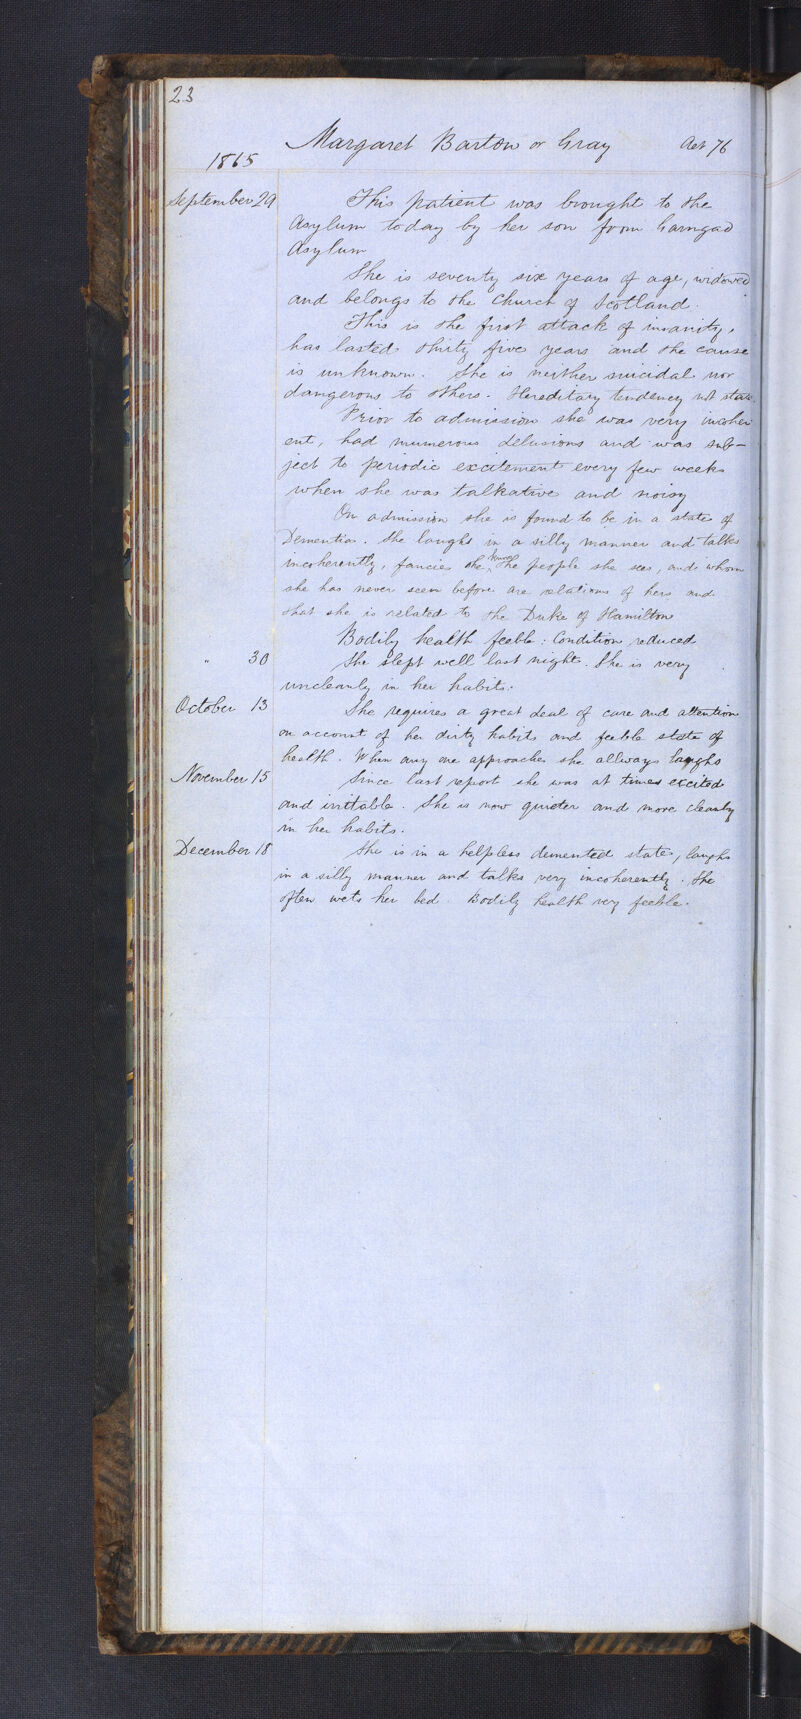 23
Margaret Barton or Gray Aet 76
1865
September 29 This patient was brought to the
Asylum today by her son from Garngad
Asylum
She is seventy six years of age, widowed
and belongs to the Church of Scotland.
This is the first attack of insanity,
has lasted thirty five years and the cause
is unknown. She is neither suicidal nor
dangerous to others. Hereditary tendency not state
Prior to admission she was very incoher
ent, had numerous delusions and was sub-
ject to periodic excitement every few weeks
when she was talkative and noisy
On admission she is found to be in a state of
Dementia. She laughs in a silly manner and talks
incoherently, fancies she knows the people she sees, and whom
she has never seen before are relations of hers and
that she is related to the Duke of Hamilton
Bodily health feeble: Condition reduced
" 30 She slept well last night. She is very
uncleanly in her habits.
October 13 She requires a great deal of care and attention
on account of her dirty habits and feeble state of
health. When any one approaches she allways laughs
November 15 Since last report she was at times excited
and irritable. She is now quieter and more cleanly
in her habits.
December 18 She is in a helpless demented state, laughs
in a silly manner and talks very incoherently. She
often wets her bed. Bodily health very feeble.